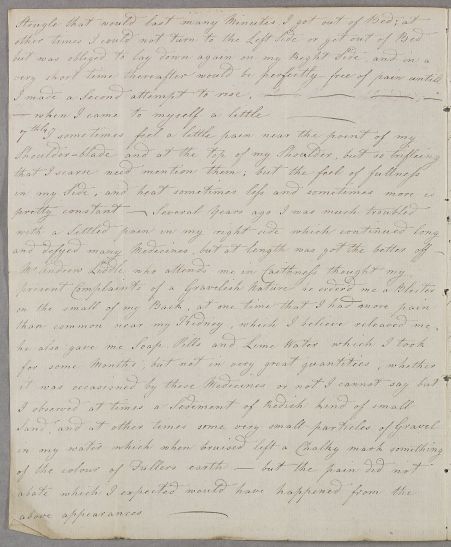 Strugle that would last many Minutes I got out of Bed; at
other times I could not turn to the Left Side or get out of Bed
but was obliged to lay down again on my Right Side, and in a
very short time thereafter would be perfectly free of pain untill
I made a Second attempt to rise. —
— when I came to myself a little —
7thly I sometimes feel a little pain near the point of my
Shoulder-blade and at the top of my Shoulder, but so trifleing
that I scarce need mention them; but the feel of fullness
in my Side, and heat sometimes less and sometimes more is
pretty constant — Several Years ago I was much troubled
with a Settled pain in my right side which continued long
and defyed many Medicines, but at length was got the better off —
Mr Andrew Liddle who attends me in Caithness thought my
present Complaints of a Gravelish Native ordered me a Blister
on the small of my Back, at one time that I had more pain
than common near my Kidney, which I believe releaved me,
he also gave me Soap Pills and Lime Water which I took
for some Months, but not in very great quantities, whether
it was occasioned by these Medecines or not I cannot say but
I observed at times a Sediment of Redish kind of small
Sand, and at other times some very small particles of Gravel
in my water which when bruised left a Chalky mark something
of the colour of Fullers earth — but the pain did not
abate which I expected would have happened from the
above appearances —